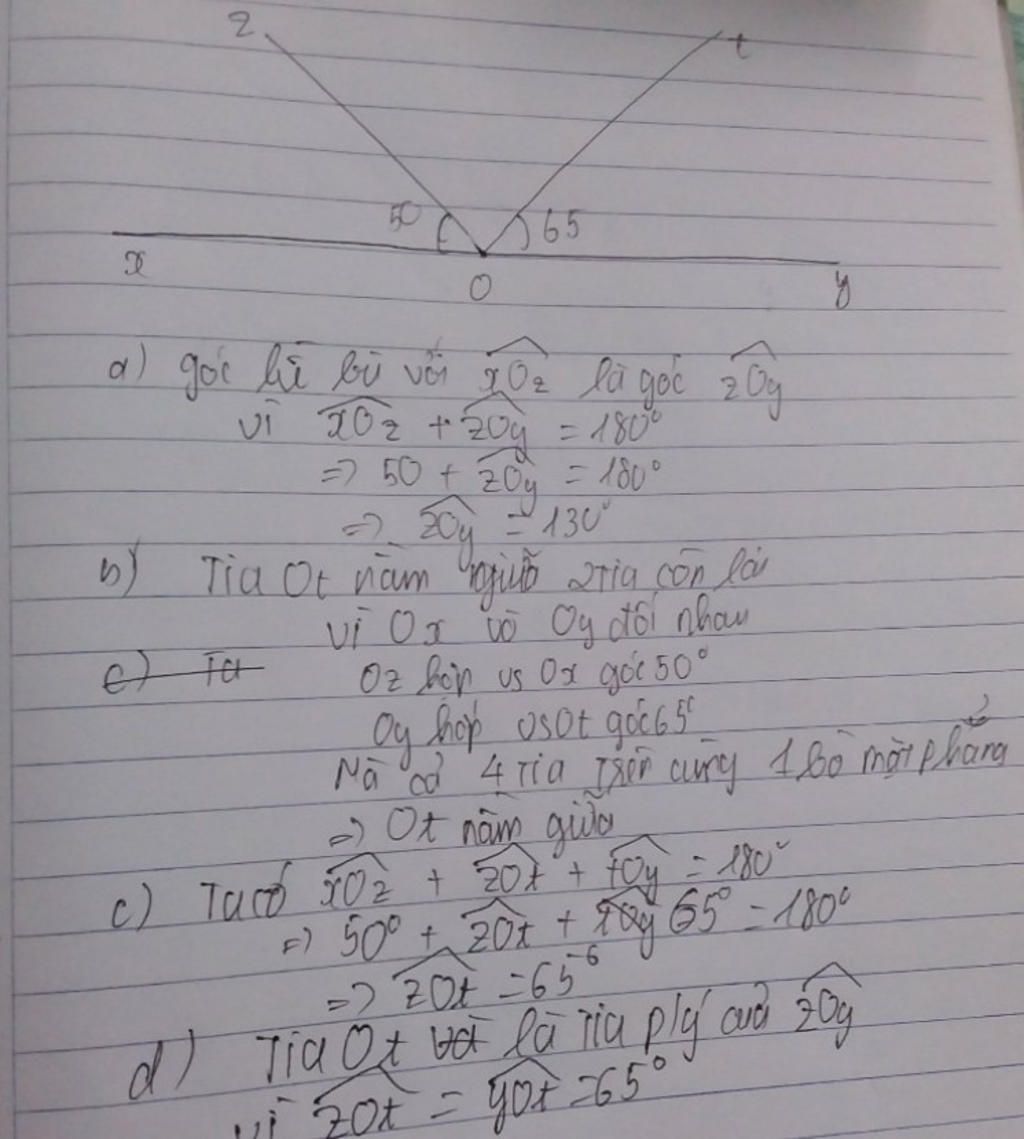 z t
50 65
x O y
a) góc kề bù với xOz là góc zOy
vì xOz + zOy = 180°
=> 50 + zOy = 180°
=> zOy = 130°
b) Tia Ot nằm giữa 2 Tia còn lại
vì Ox và Oy đối nhau
c) Ta Oz hợp vs Ox góc 50°
Oy hợp vs Ot góc 65°
Mà cả 4 Tia trên cùng 1 bờ mặt phẳng
=> Ot nằm giữa
c) Ta có xOz + zOt + tOy = 180°
=> 50° + zOt + 65° = 180°
=> zOt = 65°
d) Tia Ot là Tia p/g của zOy
vì zOt = yOt = 65°